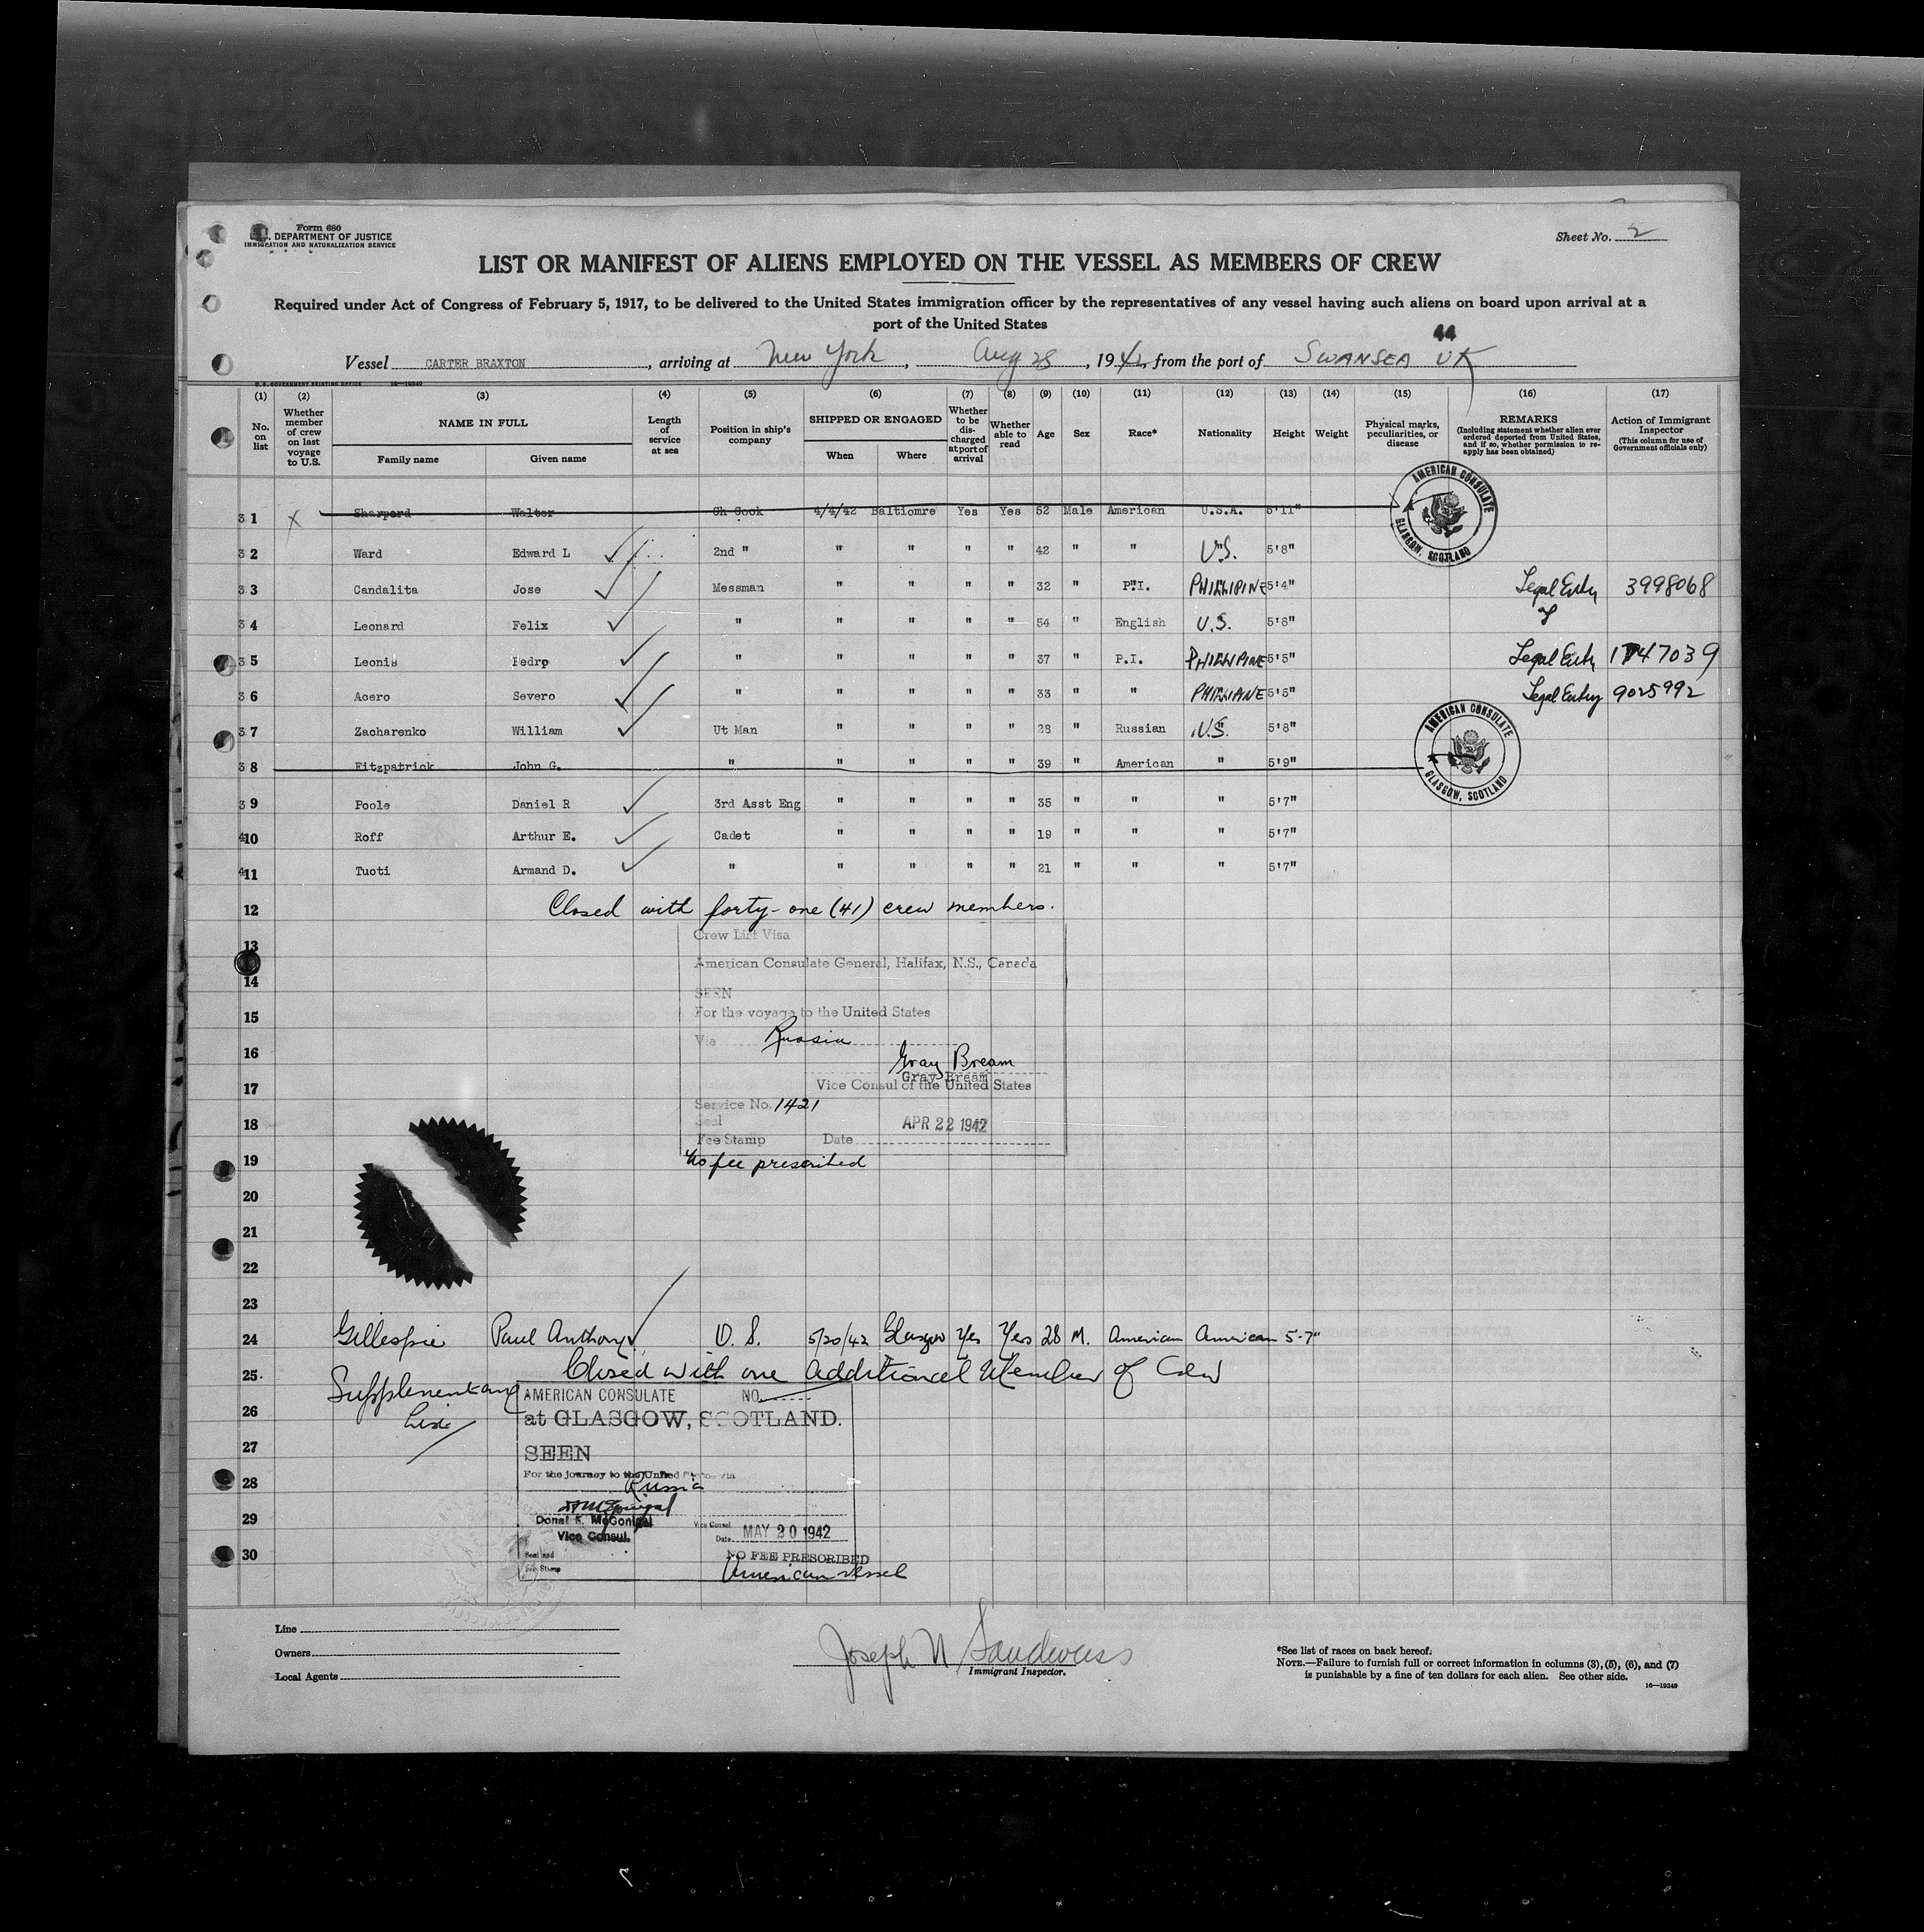 Form 680
DEPARTMENT OF JUSTICE
IMMIGRATION AND NATURALIZATION SERVICE
Sheet No. 2
LIST OR MANIFEST OF ALIENS EMPLOYED ON THE VESSEL AS MEMBERS OF CREW
Required under Act of Congress of February 5, 1917, to be delivered to the United States immigration officer by the representatives of any vessel having such aliens on board upon arrival at a
port of the United States
44
Vessel CARTER BRAXTON, arriving at New York, Aug 28, 1942, from the port of SWANSEA UK
U.S. GOVERNMENT PRINTING OFFICE 16—19349
(1) (2) (3) (4) (5) (6) (7) (8) (9) (10) (11) (12) (13) (14) (15) (16) (17)
No. on list
Whether member of crew on last voyage to U.S.
NAME IN FULL
Family name Given name
Length of service at sea
Position in ship's company
SHIPPED OR ENGAGED
When Where
Whether to be discharged at port of arrival
Whether able to read
Age
Sex
Race*
Nationality
Height
Weight
Physical marks, peculiarities, or disease
REMARKS
(Including statement whether alien ever ordered deported from United States, and if so, whether permission to reapply has been obtained)
Action of Immigrant Inspector
(This column for use of Government officials only)
31 X Sharperd Walter Ch Cook 4/4/42 Baltiomre Yes Yes 52 Male American U.S.A. 5'11"
AMERICAN CONSULATE GLASGOW, SCOTLAND
32 Ward Edward L 2nd " " " " " 42 " " U.S. 5'8"
33 Candalita Jose Messman " " " " 32 " P.I. PHILLIPINE 5'4" Legal Entry 3998068
34 Leonard Felix " " " " " 54 " English U.S. 5'8"
35 Leonis Pedro " " " " " 37 " P.I. PHILLIPINE 5'5" Legal Entry 1747039
36 Acero Severo " " " " " 33 " " PHILLIANE 5'5" Legal Entry 9025992
37 Zacharenko William Ut Man " " " " 28 " Russian U.S. 5'8"
38 Fitzpatrick John G. " " " " " 39 " American " 5'9"
AMERICAN CONSULATE GLASGOW, SCOTLAND
39 Poole Daniel R 3rd Asst Eng " " " " 35 " " " 5'7"
410 Roff Arthur E. Cadet " " " " 19 " " " 5'7"
411 Tuoti Armand D. " " " " " 21 " " " 5'7"
12 Closed with forty-one (41) crew members.
13 Crew List Visa
American Consulate General, Halifax, N.S., Canada
14 SEEN
15 For the voyage to the United States
16 Via Russia
Gray Bream
Gray Bream
17 Vice Consul of the United States
Service No. 1421
18 Seal APR 22 1942
Fee Stamp Date
19 No fee prescribed
20
21
22
23
24 Gillespie Paul Anthony O.S. 5/20/42 Glasgow Yes Yes 28 M. American American 5-7"
25 Closed with one additional Member of Crew
Supplementary
AMERICAN CONSULATE NO.
26 List at GLASGOW, SCOTLAND.
27 SEEN
For the journey to the United States via
28 Russia
29 Donal F. McGonigal Vice Consul
Vice Consul. Date MAY 20 1942
30 Seal and Fee Stamp NO FEE PRESCRIBED
American vessel
Line
Owners
Local Agents
Joseph N Sandwuss
Immigrant Inspector.
*See list of races on back hereof.
NOTE.—Failure to furnish full or correct information in columns (3), (5), (6), and (7)
is punishable by a fine of ten dollars for each alien. See other side.
16—19349